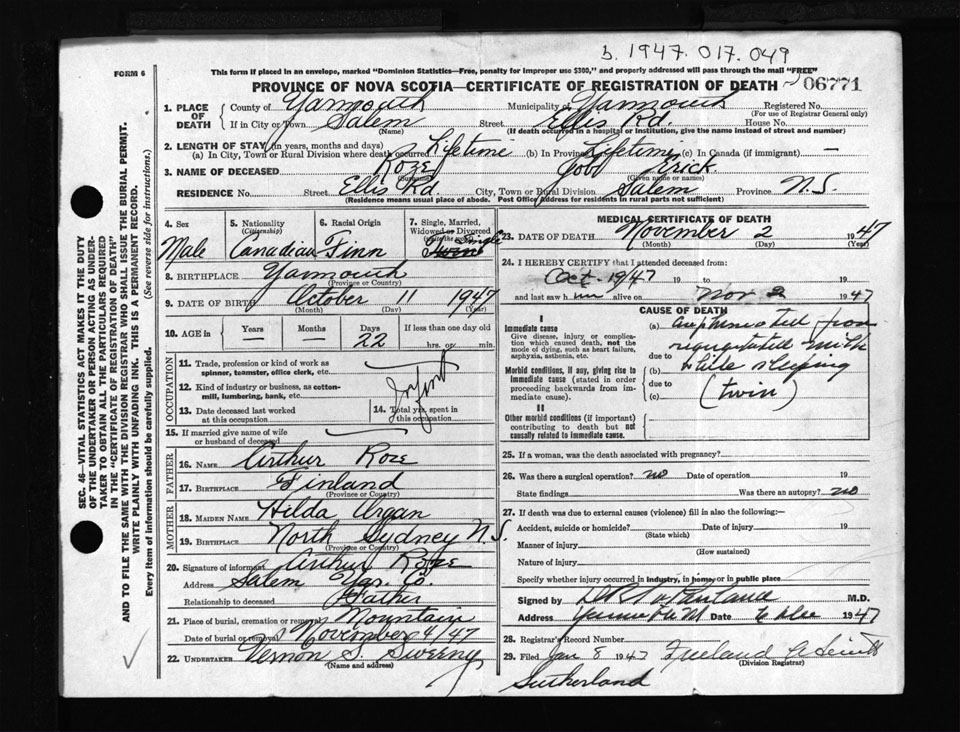 b. 1947. 017. 049
FORM 6
This form if placed in an envelope, marked "Dominion Statistics—Free, penalty for improper use $300," and properly addressed will pass through the mail "FREE"
PROVINCE OF NOVA SCOTIA—CERTIFICATE OF REGISTRATION OF DEATH 06771
1. PLACE OF DEATH County of Yarmouth Municipality of Yarmouth Registered No.
(For use of Registrar General only)
If in City or Town Salem Street Ellis Rd. House No.
(Name) (If death occurred in a hospital or institution, give the name instead of street and number)
2. LENGTH OF STAY (in years, months and days)
(a) In City, Town or Rural Division where death occurred Lifetime (b) In Province Lifetime (c) In Canada (if immigrant) —
3. NAME OF DECEASED Roze
(Surname) (Given name or names)
RESIDENCE No. Street Ellis Rd. City, Town or Rural Division Salem Province N.S.
(Residence means usual place of abode. Post Office Address for residents in rural parts not sufficient)
SEC. 46—VITAL STATISTICS ACT MAKES IT THE DUTY
OF THE UNDERTAKER OR PERSON ACTING AS UNDER-
TAKER TO OBTAIN ALL THE PARTICULARS REQUIRED
IN THE "CERTIFICATE OF REGISTRATION OF DEATH"
AND TO FILE THE SAME WITH THE DIVISION REGISTRAR WHO SHALL ISSUE THE BURIAL PERMIT.
WRITE PLAINLY WITH UNFADING INK. THIS IS A PERMANENT RECORD.
Every item of information should be carefully supplied. (See reverse side for instructions.)
4. Sex 5. Nationality (Citizenship) 6. Racial Origin 7. Single, Married, Widowed or Divorced
Male Canadian Finn Single
8. BIRTHPLACE Yarmouth
(Province or Country)
9. DATE OF BIRTH October 11 1947
(Month) (Day) (Year)
10. AGE in Years Months Days If less than one day
— — 22 hrs. or min.
OCCUPATION
11. Trade, profession or kind of work as
spinner, teamster, office clerk, etc.
12. Kind of industry or business, as cotton-
mill, lumbering, bank, etc.
Infant
13. Date deceased last worked
at this occupation
14. Total yrs. spent in
this occupation
15. If married give name of wife
or husband of deceased
FATHER
16. NAME Arthur Roze
17. BIRTHPLACE Finland
(Province or Country)
MOTHER
18. MAIDEN NAME Hilda
19. BIRTHPLACE North Sydney N.S.
(Province or Country)
20. Signature of informant Arthur Roze
Address Salem Yar. Co.
Relationship to deceased Father
21. Place of burial, cremation or removal Mountain
Date of burial or removal November 4/47
22. UNDERTAKER Vernon S. Sweeny
(Name and address)
MEDICAL CERTIFICATE OF DEATH
23. DATE OF DEATH November 2 1947
(Month) (Day) (Year)
24. I HEREBY CERTIFY that I attended deceased from:
Oct. 19/47 19 to 19
and last saw him alive on Nov 2 1947
CAUSE OF DEATH
I
Immediate cause
Give disease, injury or complica-
tion which caused death, not the
mode of dying, such as heart failure,
asphyxia, asthenia, etc.
(a) from
due to
Morbid conditions, if any, giving rise to
immediate cause (stated in order
proceeding backwards from im-
mediate cause).
(b) sleeping
due to
(c) (twin)
II
Other morbid conditions (if important)
contributing to death but not
causally related to immediate cause.
25. If a woman, was the death associated with pregnancy?
26. Was there a surgical operation? no Date of operation 19
State findings Was there an autopsy? no
27. If death was due to external causes (violence) fill in also the following:—
Accident, suicide or homicide? Date of injury 19
(State which)
Manner of injury
(How sustained)
Nature of injury
Specify whether injury occurred in industry, in home, or in public place
Signed by M.D.
Address Date 1947
28. Registrar's Record Number
29. Filed Jan 8 1947 Freeland
(Division Registrar)
Sutherland